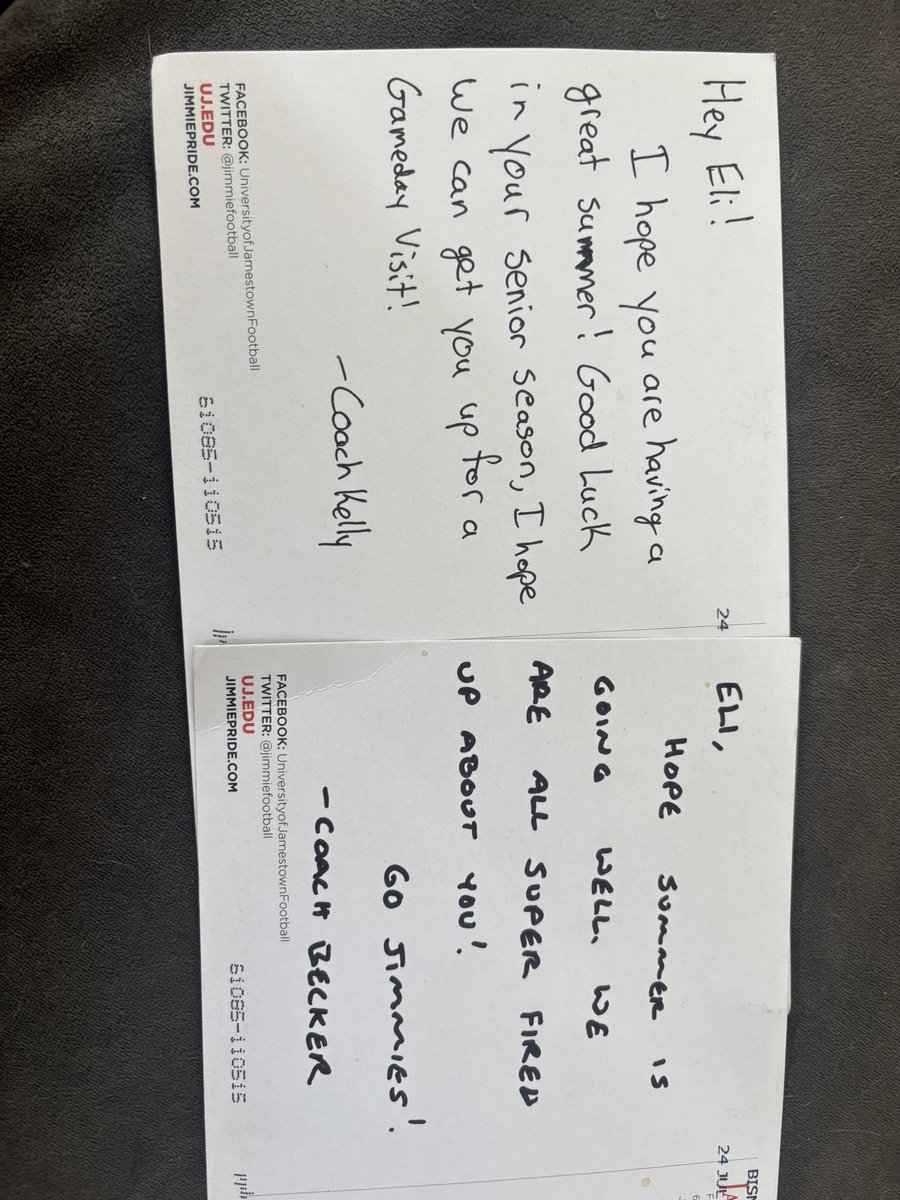 Hey Eli!
I hope you are having a
great summer! Good Luck
in your senior season, I hope
we can get you up for a
Gameday Visit!
-Coach Kelly
FACEBOOK: UniversityofJamestownFootball
TWITTER: @jimmiefootball
UJ.EDU
JIMMIEPRIDE.COM
61085-110515
24
ELI,
HOPE SUMMER IS
GOING WELL. WE
ARE ALL SUPER FIRED
UP ABOUT YOU!
GO JIMMIES!
-COACH BECKER
FACEBOOK: UniversityofJamestownFootball
TWITTER: @jimmiefootball
UJ.EDU
JIMMIEPRIDE.COM
61085-110515
BISM
24 JUL